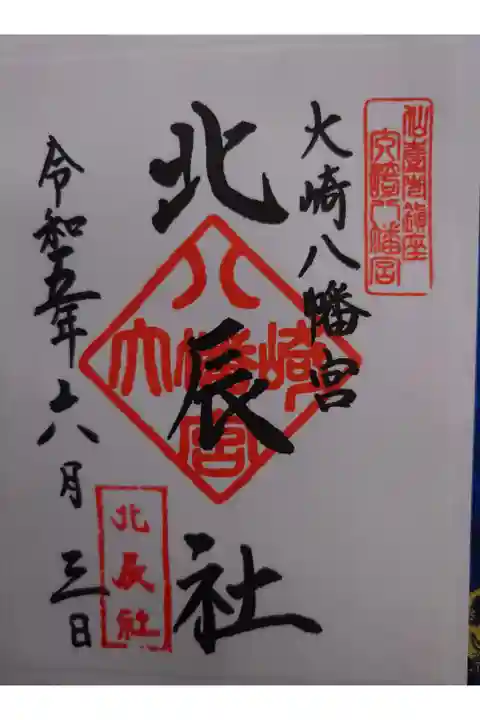 仙臺市鎮座
大崎八幡宮
大崎八幡宮
北辰社
八幡宮
大崎
北辰社
令和五年六月三日